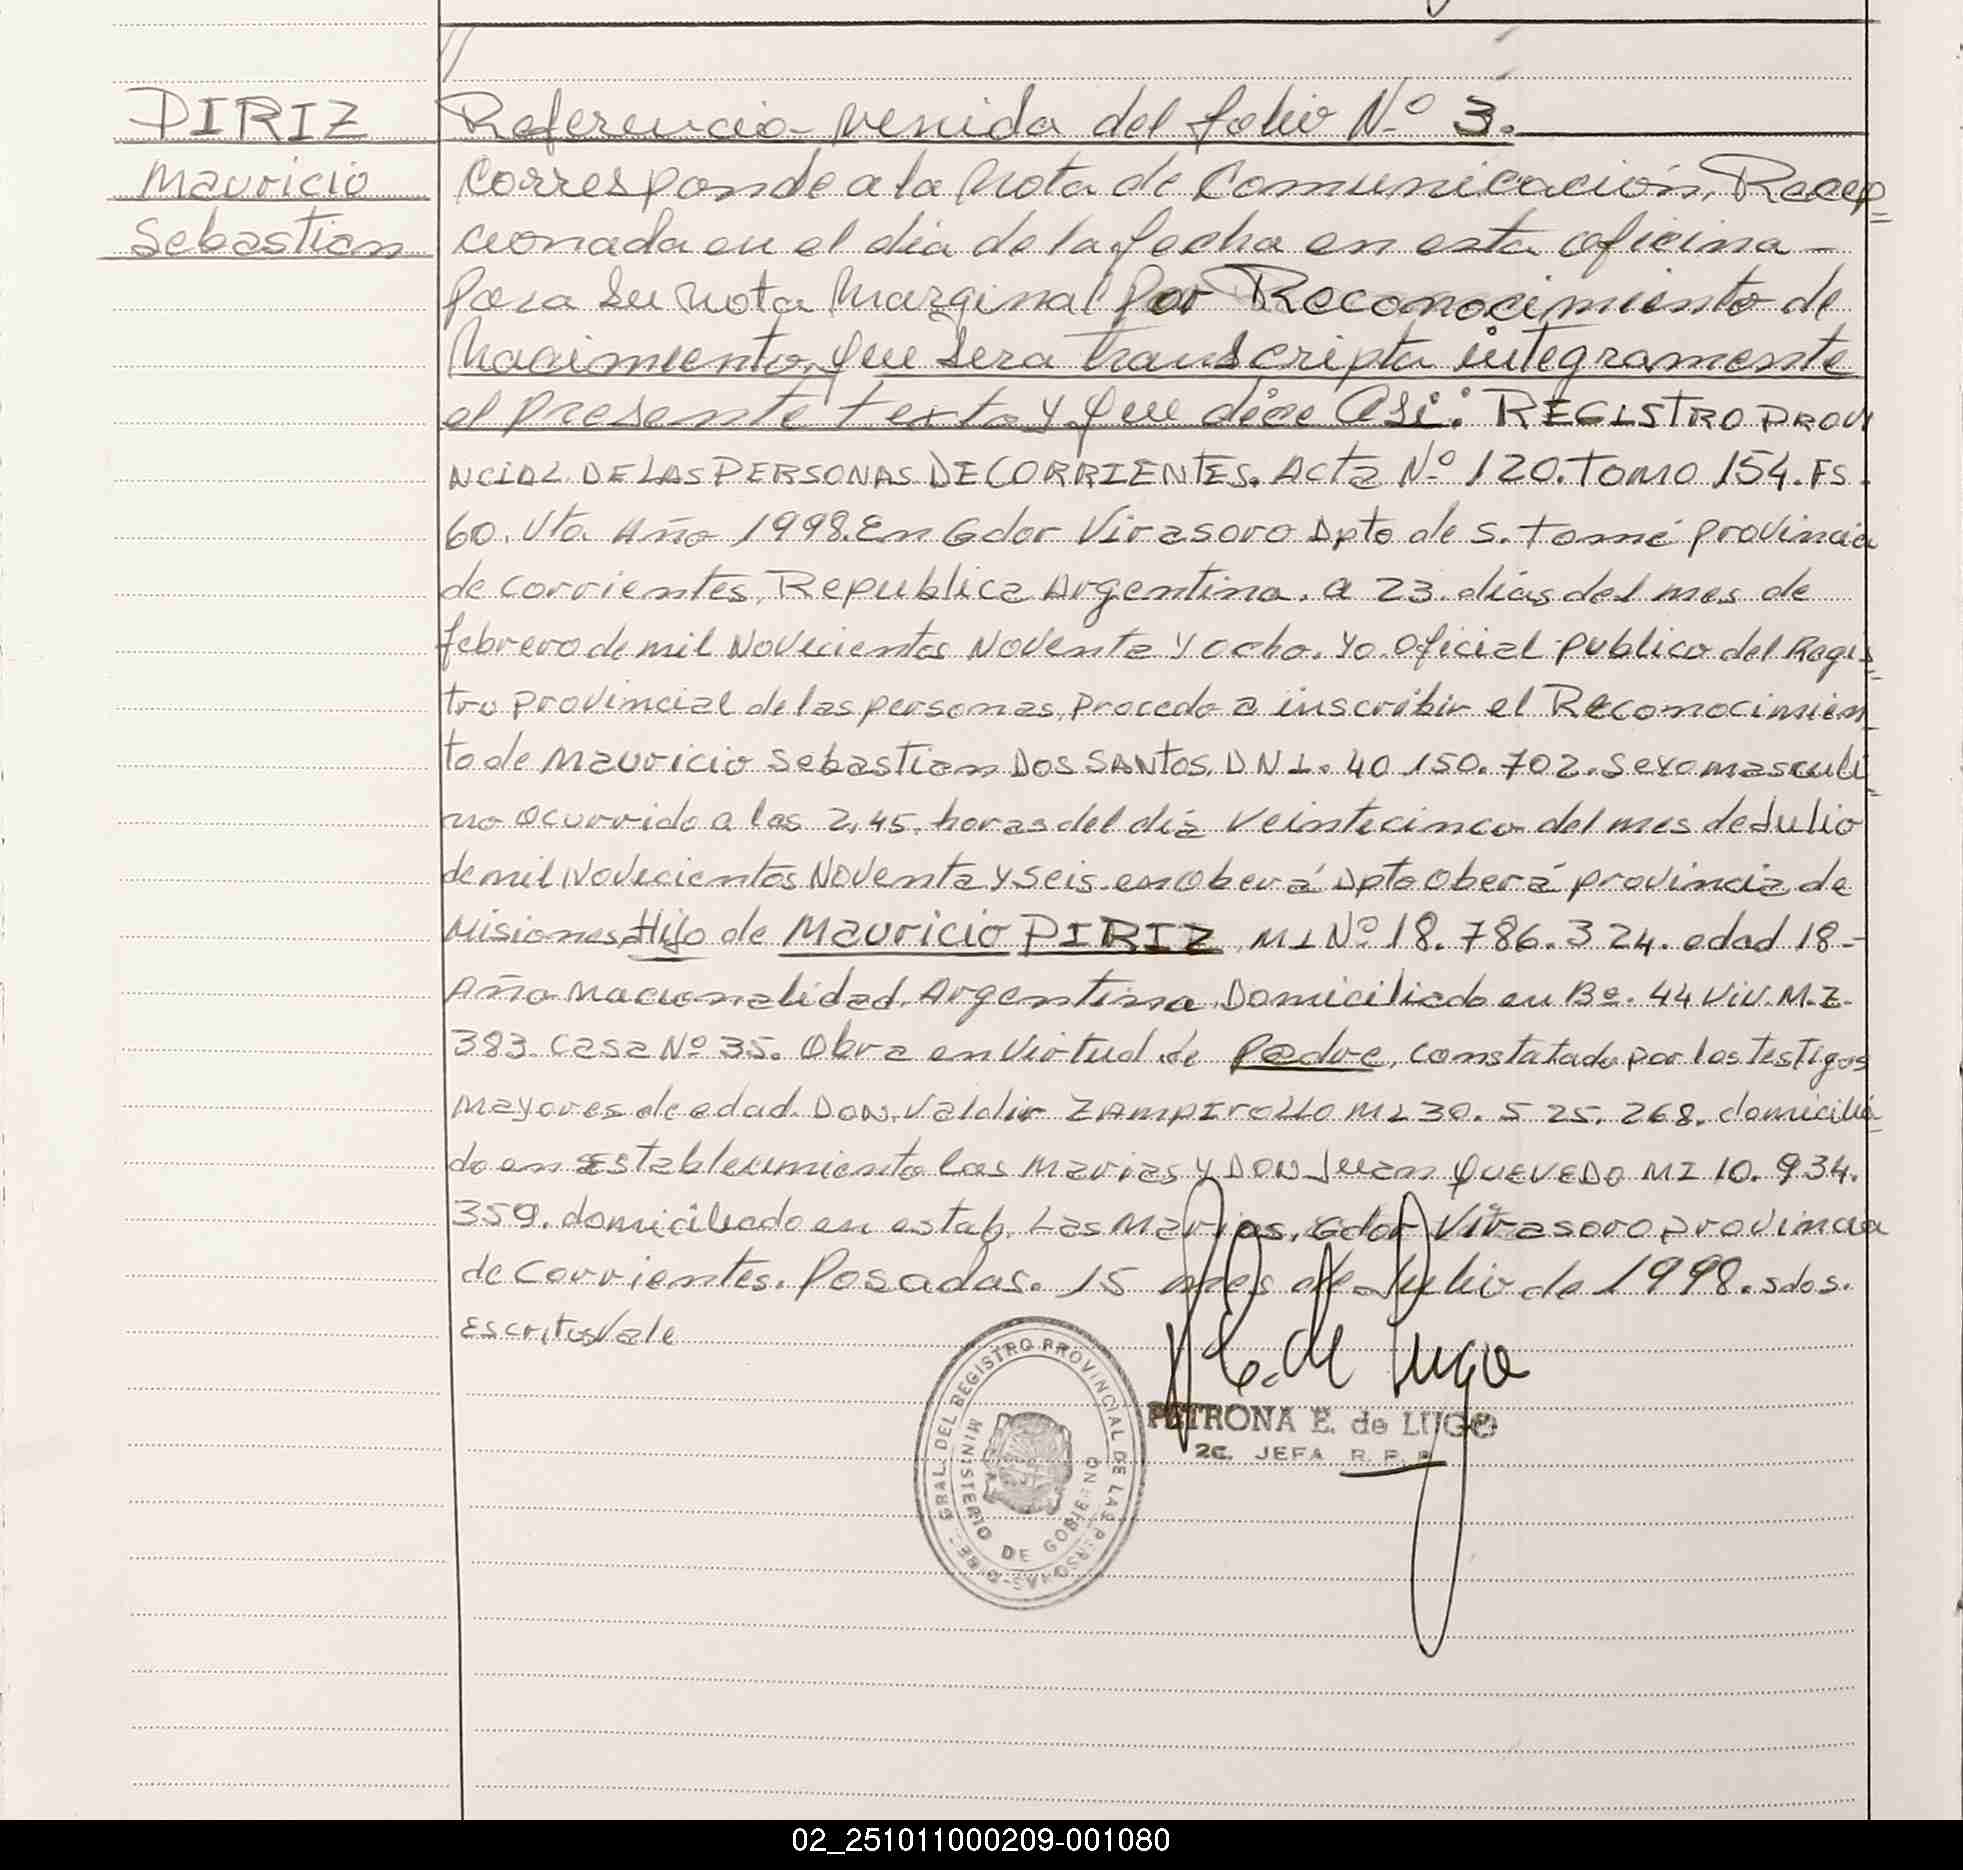 DIRIZ
Mauricio
Sebastian
Referencia venida del folio Nº 3.
Corresponde a la Nota de Comunicación, Recep=
cionada en el día de la fecha en esta oficina -
para su Nota Marginal por Reconocimiento de
Nacimiento, que sera transcripta integramente
el presente texto y que dice Asi: REGISTRO PROVI
NCIAL DE LAS PERSONAS DE CORRIENTES. Acta Nº 120. TOMO 154. FS.
60. Vto. Año 1998. En Gdor Virasoro Dpto de S. Tomé provincia
de Corrientes, Republica Argentina. a 23 días del mes de
febrero de mil Novecientos Noventa y ocho. yo oficial publico del Regis=
tro provincial de las personas, procedo a inscribir el Reconocimien=
to de Mauricio Sebastian DOS SANTOS. DNI. 40.150.702. Sexo masculi=
no ocurrido a las 2,45. horas del día Veinticinco del mes de Julio
de mil Novecientos Noventa y seis en Oberá Dpto Oberá provincia de
Misiones Hijo de Mauricio DIRIZ MI Nº 18.786.324. edad 18-
Año Nacionalidad Argentina Domiciliado en Bº. 44 Viv. M.Z.
383. Casa Nº 35. Obra en virtud de Padre, constatado por los testigos
mayores de edad DON. Valdir ZAMPIROLLO MI 30.525.268. domicilia=
do en Establecimiento las Marias y DON Juan QUEVEDO MI 10.934.
359. domiciliado en estab. Las Marias, Gdor Virasoro provincia
de Corrientes. Posadas. 15 mes de Julio de 1998. sdos.
escritos Vale
P. E. de Lugo
PETRONA E. de LUGO
2a. JEFA R. P. P.
GRAL. DEL REGISTRO PROVINCIAL DE LAS PERSONAS
MINISTERIO DE GOBIERNO
02_251011000209-001080